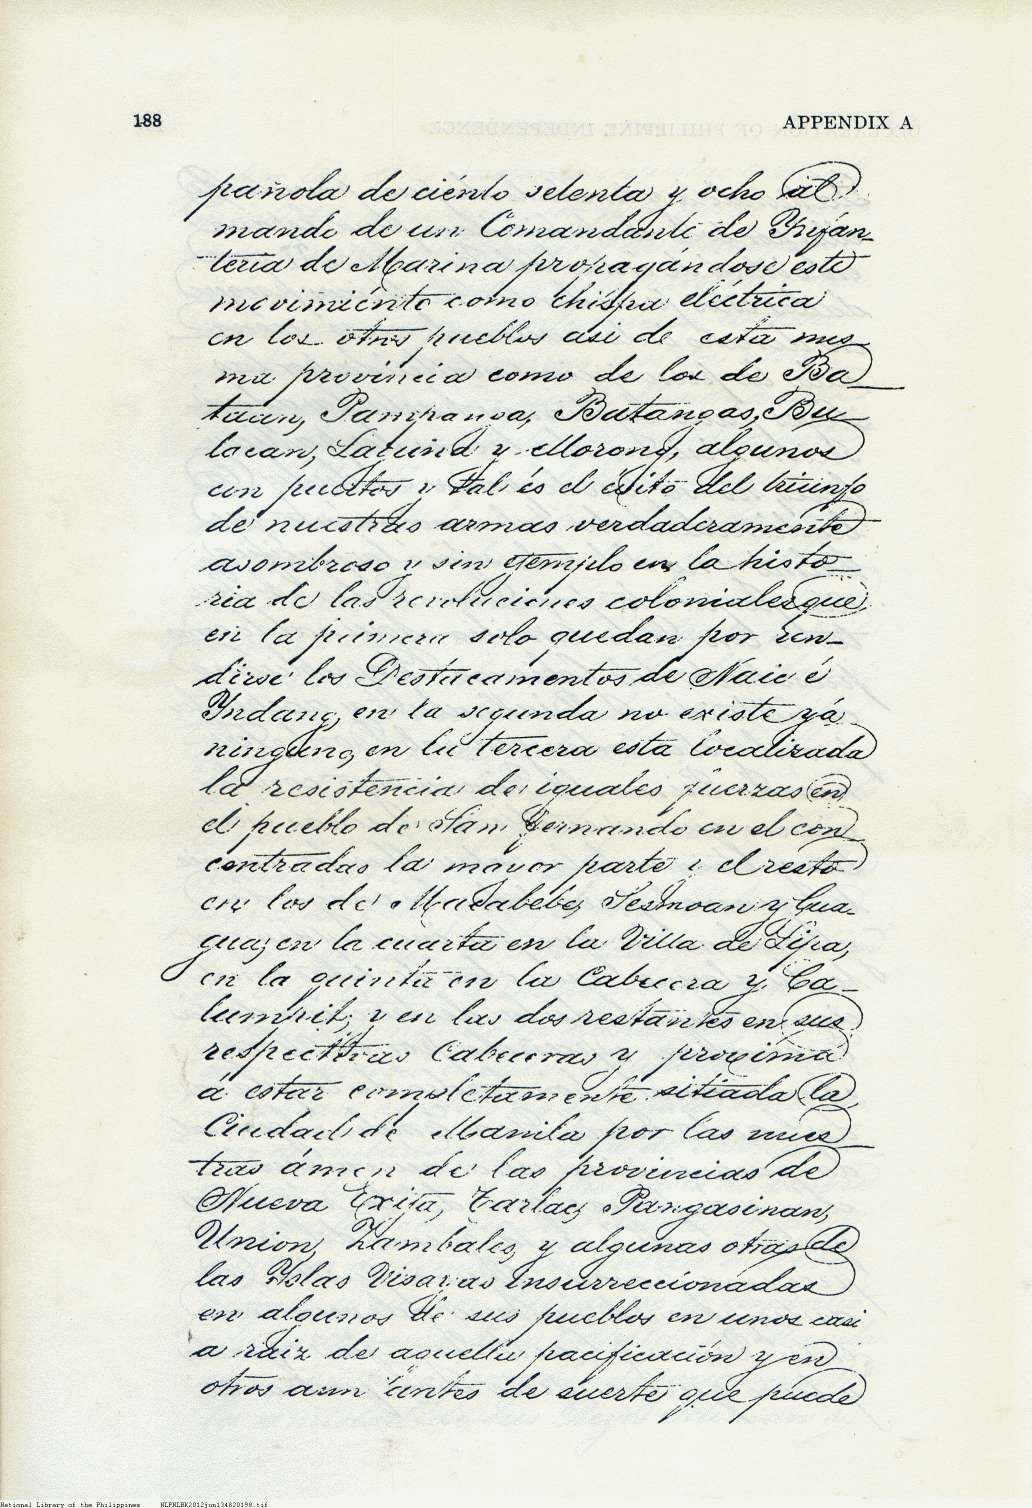 188
APPENDIX A
pañola de ciénto setenta y ocho al
mando de un Comandante de Ynfan-
teria de Marina propagandose este
movimiénto como chispa eléctrica
en los otros pueblos asi de esta mis-
ma provincia como de los de Ba-
taan, Pampanga, Batangas, Bu-
lacan, Laguna y Morong, algunos
con puertos y tal és el éxito del triunfo
de nuestras armas verdaderamente
asombroso y sin ejemplo en la histo-
ria de las revoluciones coloniales que
en la primera solo quedan por ren-
dirse los Destacamentos de Naic é
Yndang, en la segunda no existe yá
ninguno, en la tercera esta localizada
la resistencia de iguales fuerzas en
el pueblo de San Fernando en el con
centradas la mayor parte y el resto
en los de Macabebe, Sesmoan y Gua-
gua; en la cuarta en la Villa de Lipa,
en la quinta en la Cabecera y Ca-
lumpit; y en las dos restantes en sus
respectivas Cabeceras y proxima
á estar completamente sitiada la
Ciudad de Manila por las nues-
tras ámen de las provincias de
Nueva Exija, Tarlac, Pangasinan,
Union, Zambales, y algunas otras de
las Yslas Visayas insurreccionadas
en algunos de sus pueblos en unos casi
a raiz de aquella pacificación y en
otros aun antes de suerte que puede
National Library of the Philippines NLPNLBK2012jun134820198.tif